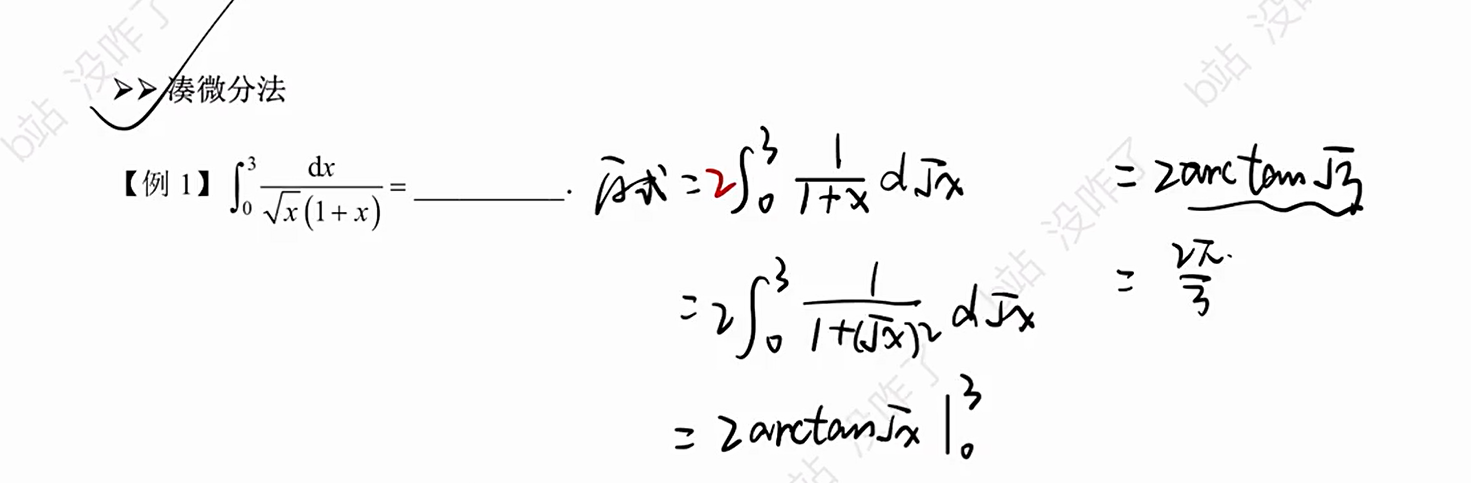 ➢➢凑微分法
【例 1】∫₀³ dx/(√x(1+x)) = ________. 原式 = 2∫₀³ 1/(1+x) d√x
= 2∫₀³ 1/(1+(√x)²) d√x
= 2arctan√x |₀³
= 2arctan√3
= 2π/3
b站 没咋了
b站 没咋了
b站 没咋了
站 没咋了